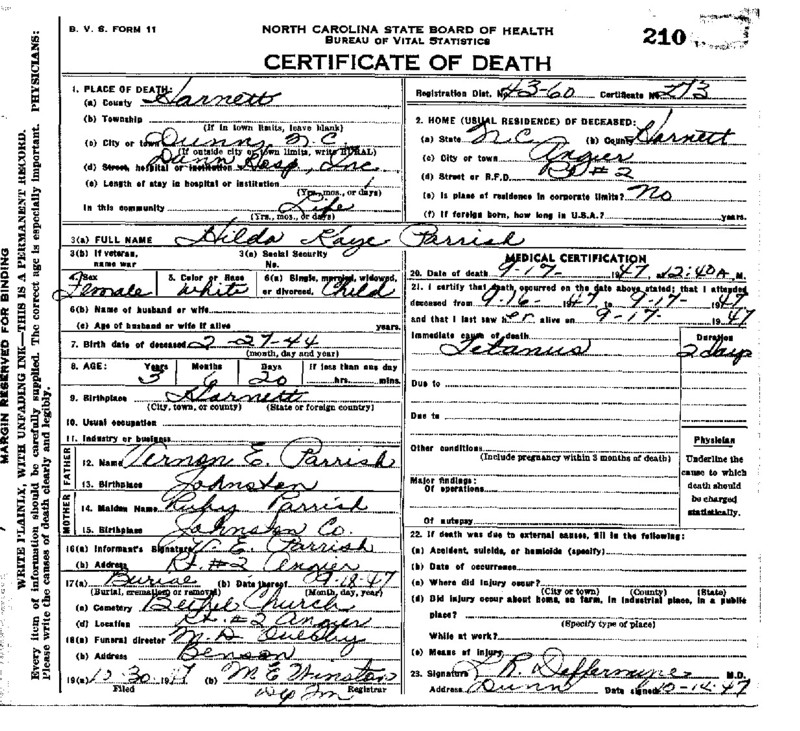 B. V. S. FORM 11
NORTH CAROLINA STATE BOARD OF HEALTH
BUREAU OF VITAL STATISTICS
210
CERTIFICATE OF DEATH
MARGIN RESERVED FOR BINDING
WRITE PLAINLY, WITH UNFADING INK—THIS IS A PERMANENT RECORD.
Every item of information should be carefully supplied. The correct age is especially important. PHYSICIANS:
Please write the causes of death clearly and legibly.
1. PLACE OF DEATH:
(a) County Harnett
(b) Township
(If in town limits, leave blank)
(c) City or town Dunn, N C
(If outside city or town limits, write RURAL)
(d) Street, hospital or institution Dunn Hosp, Inc
(e) Length of stay in hospital or institution 1
(Yrs., mos., or days)
In this community Life
(Yrs., mos., or days)
Registration Dist. No. 43-60 Certificate No. 213
2. HOME (USUAL RESIDENCE) OF DECEASED:
(a) State N.C. (b) County Harnett
(c) City or town Angier
(d) Street or R.F.D. Rt #2
(e) Is place of residence in corporate limits? No
(f) If foreign born, how long in U.S.A.? years.
3(a) FULL NAME Hilda Kaye Parrish
3(b) If veteran, name war
3(a) Social Security No.
4. Sex Female
5. Color or Race white
6(a) Single, married, widowed, or divorced. Child
6(b) Name of husband or wife
(c) Age of husband or wife if alive years.
7. Birth date of deceased 2-27-44
(month, day and year)
8. AGE: Years 3 Months 6 Days 20 If less than one day hrs. mins.
9. Birthplace Harnett
(City, town, or county) (State or foreign country)
10. Usual occupation
11. Industry or business
FATHER
12. Name Vernon E. Parrish
13. Birthplace Johnston
MOTHER
14. Maiden Name Ruby Parrish
15. Birthplace Johnston Co.
16(a) Informant's Signature V. E. Parrish
(b) Address Rt. #2 Angier
17(a) Burial (b) Date thereof 9-18-47
(Burial, cremation or removal) (Month, day, year)
(c) Cemetery Bethel Church
(d) Location Rt. #2 Angier
18(a) Funeral director M. D.
(b) Address Benson
19(a) 30 (b) M E Winston
Filed Registrar
MEDICAL CERTIFICATION
20. Date of death 9-17- 1947, at 12:40A.M.
21. I certify that death occurred on the date above stated; that I attended
deceased from 9-16- 1947 to 9-17- 1947
and that I last saw er alive on 9-17- 1947
Immediate cause of death Duration
Tetanus 2 days
Due to
Due to
Other conditions
(Include pregnancy within 3 months of death)
Major findings:
Of operations
Of autopsy
Physician
Underline the
cause to which
death should
be charged
statistically.
22. If death was due to external causes, fill in the following:
(a) Accident, suicide, or homicide (specify)
(b) Date of occurrence
(c) Where did injury occur?
(City or town) (County) (State)
(d) Did injury occur about home, on farm, in industrial place, in a public
place?
(Specify type of place)
While at work?
(e) Means of injury
23. Signature M.D.
Address Dunn Date signed 10-14-47